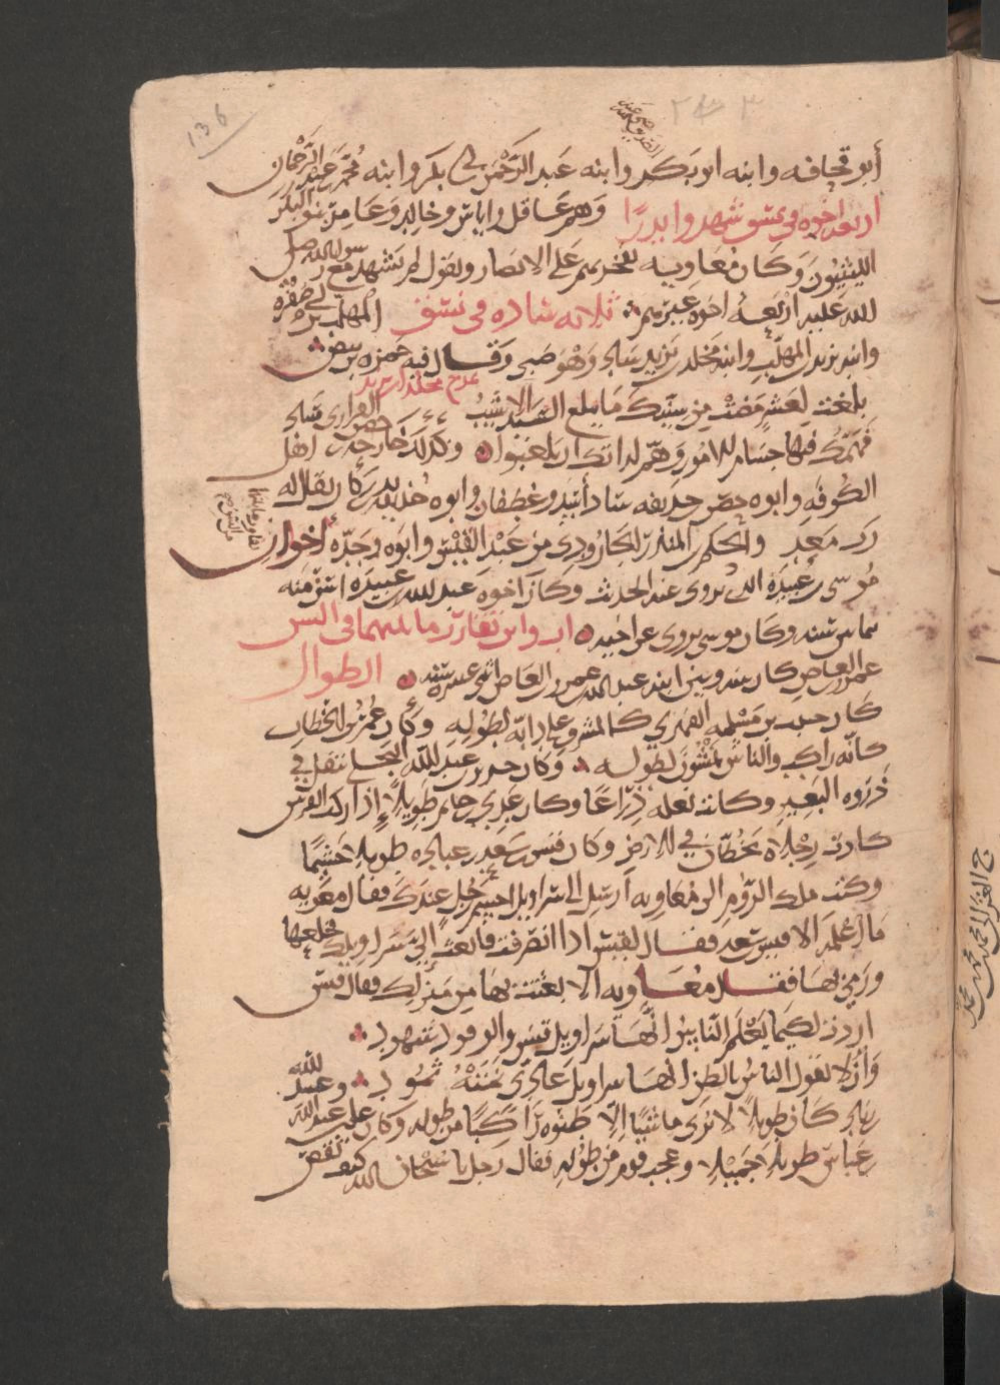 136
أبو قحافه وابنه ابو بكر وابنه عبد الرحمن بن أبي بكر وابنه محمد بن عبد الرحمن
اربعه اخوه في نسق شهدوا بدرًا وهم عاقل واياس وخالد وعامر بنو البكير
الليثيون وكان معاويه يفخر بهم على الانصار ويقول لم يشهد مع رسول الله صلى
الله عليه اربعه اخوه غيرهم ثلاثه ساده في نسق المهلب بن ابي صفره
وابنه يزيد بن المهلب وابنه مخلد بن يزيد ساد وهو صبي وقال فيه حمزه بن بيض
يمدح مخلد بن يزيد
بلغت لعشر مضت من سنيك ما يبلغ السيد الاشيب
فهمك فيها جسام الامور وهم لداتك ان يلعبوا وكذلك خارجه بن حصن الفزاري ساد اهل
الكوفه وابوه حصن بن حذيفه ساد أسد وغطفان وابوه حذيفه بن بدر كان يقال له
رب معد والحكم بن المنذر بن الجارود من عبد القيس وابوه وجده اخوان
موسى بن عبيدة الذي يروى عنه الحديث وكان اخوه عبد الله بن عبيدة اسن منه
بستين سنه وكان موسى يروى عن اخيه اب وابن تقارب ما بينهما في السن
عمرو بن العاص كان بينه وبين ابنه عبد الله بن عمرو بن العاص اثنى عشره سنه الطوال
كان حبيب بن مسلمه الفهري كالمشرف على دابه لطوله وكان عمر بن الخطاب
كأنه راكب والناس يمشون لطوله وكان جرير بن عبد الله البجلي يتفل في
ذروه البعير وكانت نعله ذراعًا وكان عدي بن حاتم طويلا إذا ركب الفرس
كادت رجلاه تخطان في الارض وكان قيس بن سعد بن عباده طويلا جسيمًا
وكتب ملك الروم الى معاويه أرسل الي سراويل اجسم رجل عندك فقال معويه
ما اعلمه الا قيس بن سعد فقال لقيس اذا انصرفت فابعث إلي بسراويلك فخلعها
ورمى بها فقال معاويه الا بعثت بها من منزلك فقال قيس
اردت لكيما يعلم الناس انها سراويل قيس والوفود شهود
وأن لا يقول الناس بالظن انها سراويل عادي نمته ثمود وعبيد الله
بن زياد كان طويلا لا يرى ماشيًا إلا ظنوه راكبًا من طوله وكان علي بن عبد الله
بن عباس طويلا جميلا وعجب قوم من طوله فقال رجل يا سبحان الله كيف نقص